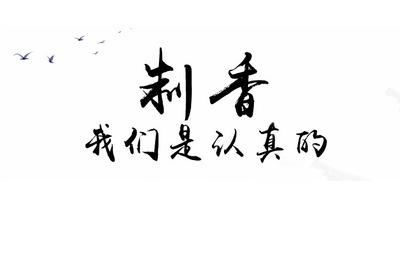 制香
我们是认真的